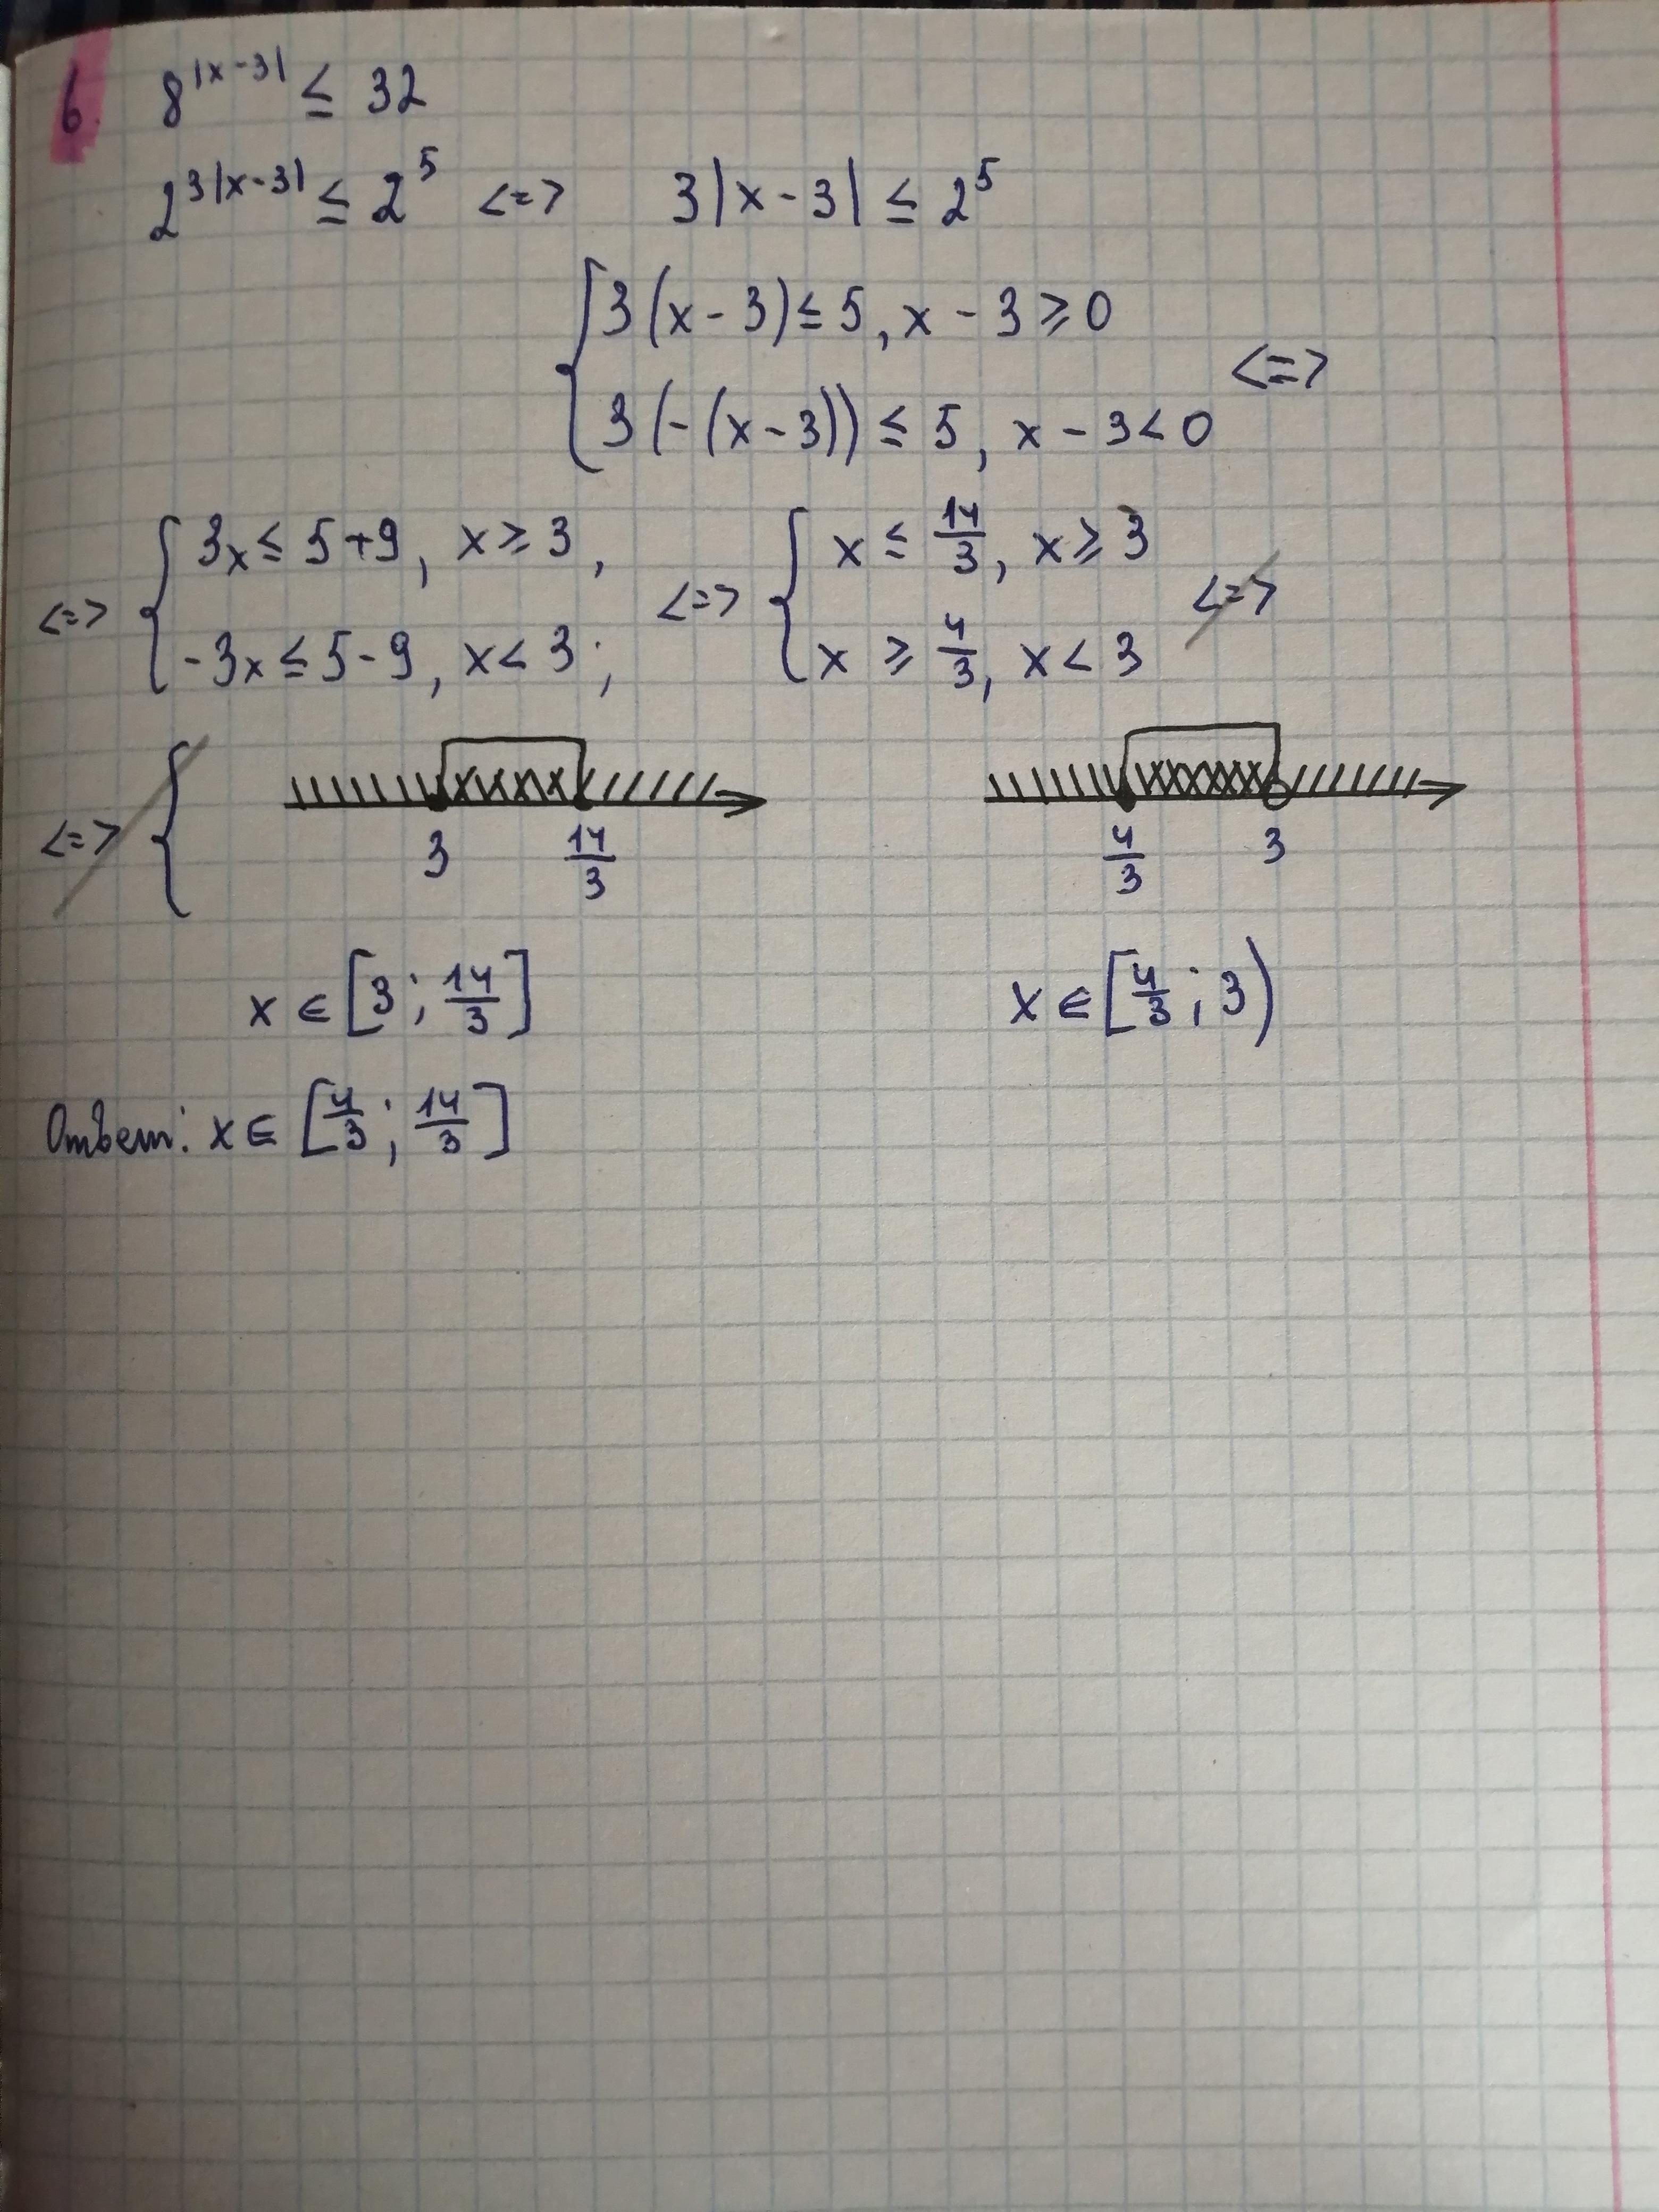 6. 8^|x-3| ≤ 32
2^3|x-3| ≤ 2^5 <=> 3|x-3| ≤ 2^5
{ 3(x-3) ≤ 5, x-3 ≥ 0
3(-(x-3)) ≤ 5, x-3 < 0 <=>
<=> { 3x ≤ 5+9, x ≥ 3,
-3x ≤ 5-9, x < 3;
<=> { x ≤ 14/3, x ≥ 3
x ≥ 4/3, x < 3 <=>
<=> {
3 14/3
4/3 3
x ∈ [3; 14/3]
x ∈ [4/3; 3)
Ответ: x ∈ [4/3; 14/3]